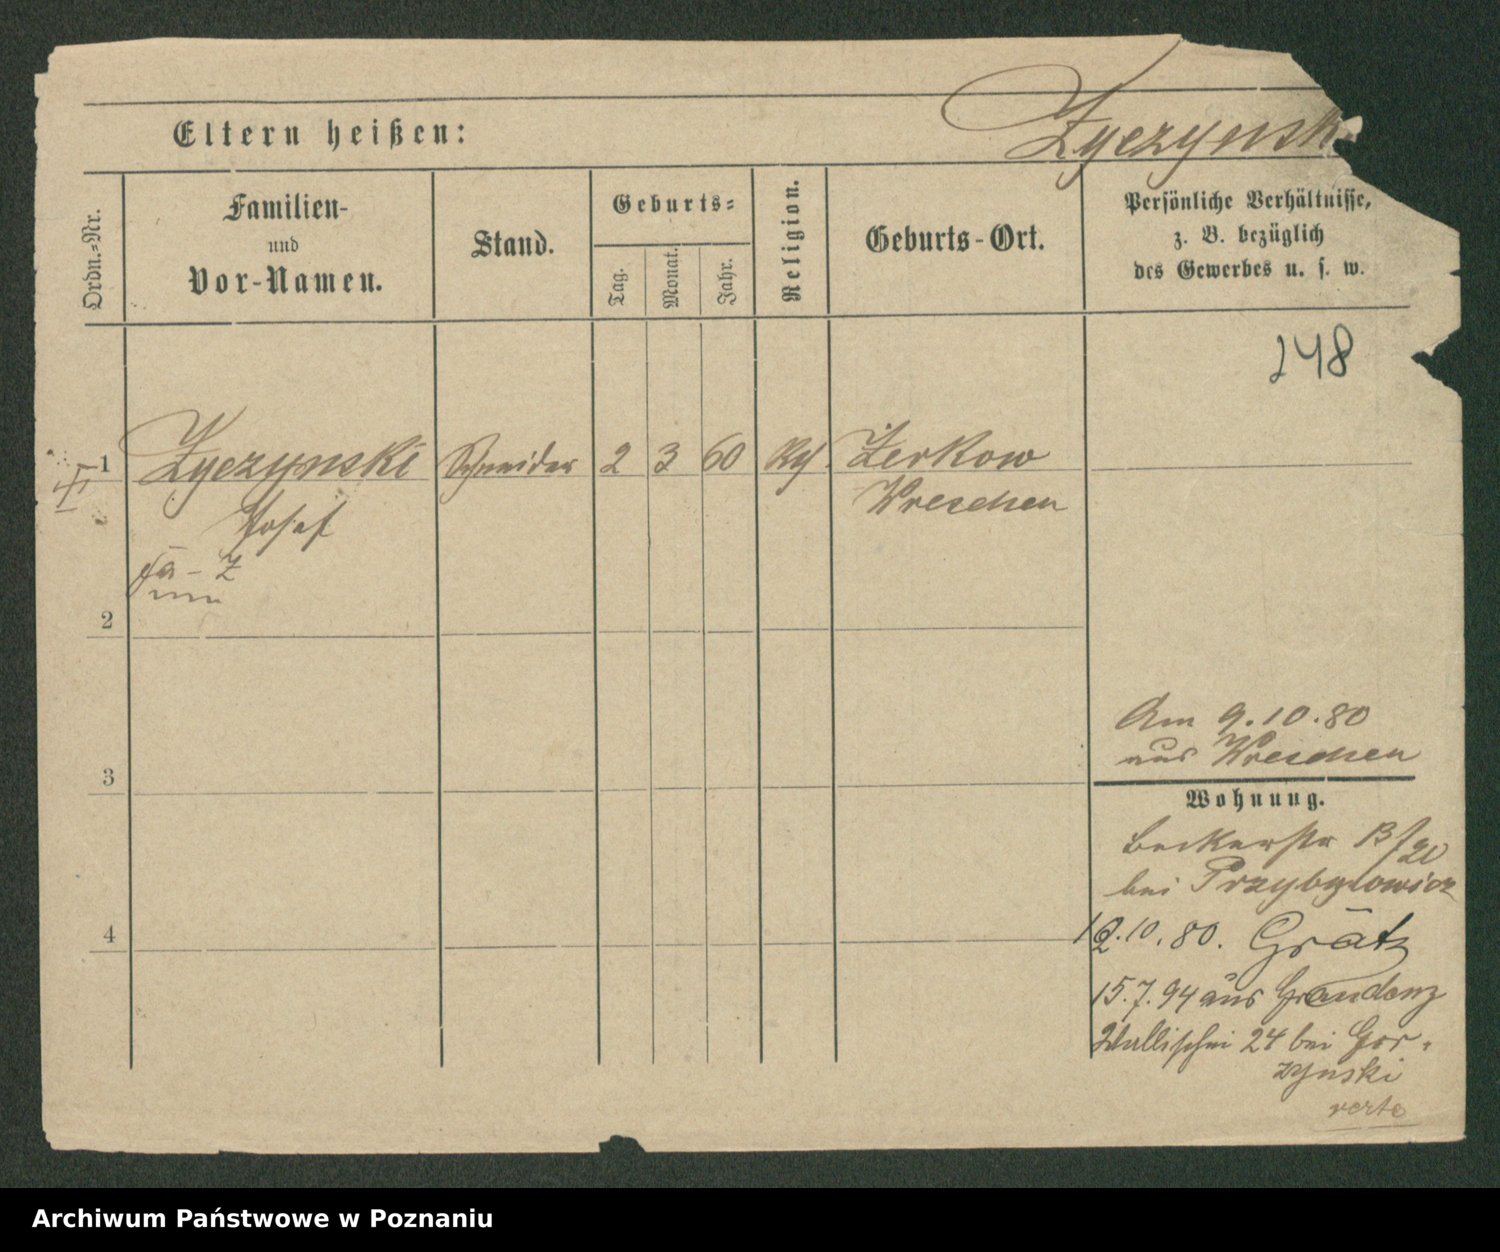 Zyczynsk
Eltern heißen:
Ordn.-Nr.
Familien-
und
Vor-Namen.
Stand.
Geburts-
Tag.
Monat.
Jahr.
Religion.
Geburts-Ort.
Persönliche Verhältnisse,
z. B. bezüglich
des Gewerbes u. s. w.
248
1 Zyczynski Schneider 2 3 60 Zerkow
Josef Wreschen
2
3
4
Am 9.10.80
aus Wreschen
Wohnung.
bei Przybylowicz
12.10.80. Grätz
15.7.94 aus Graudenz
Wallischei 24 bei Gor-
zynski
verte
Archiwum Państwowe w Poznaniu